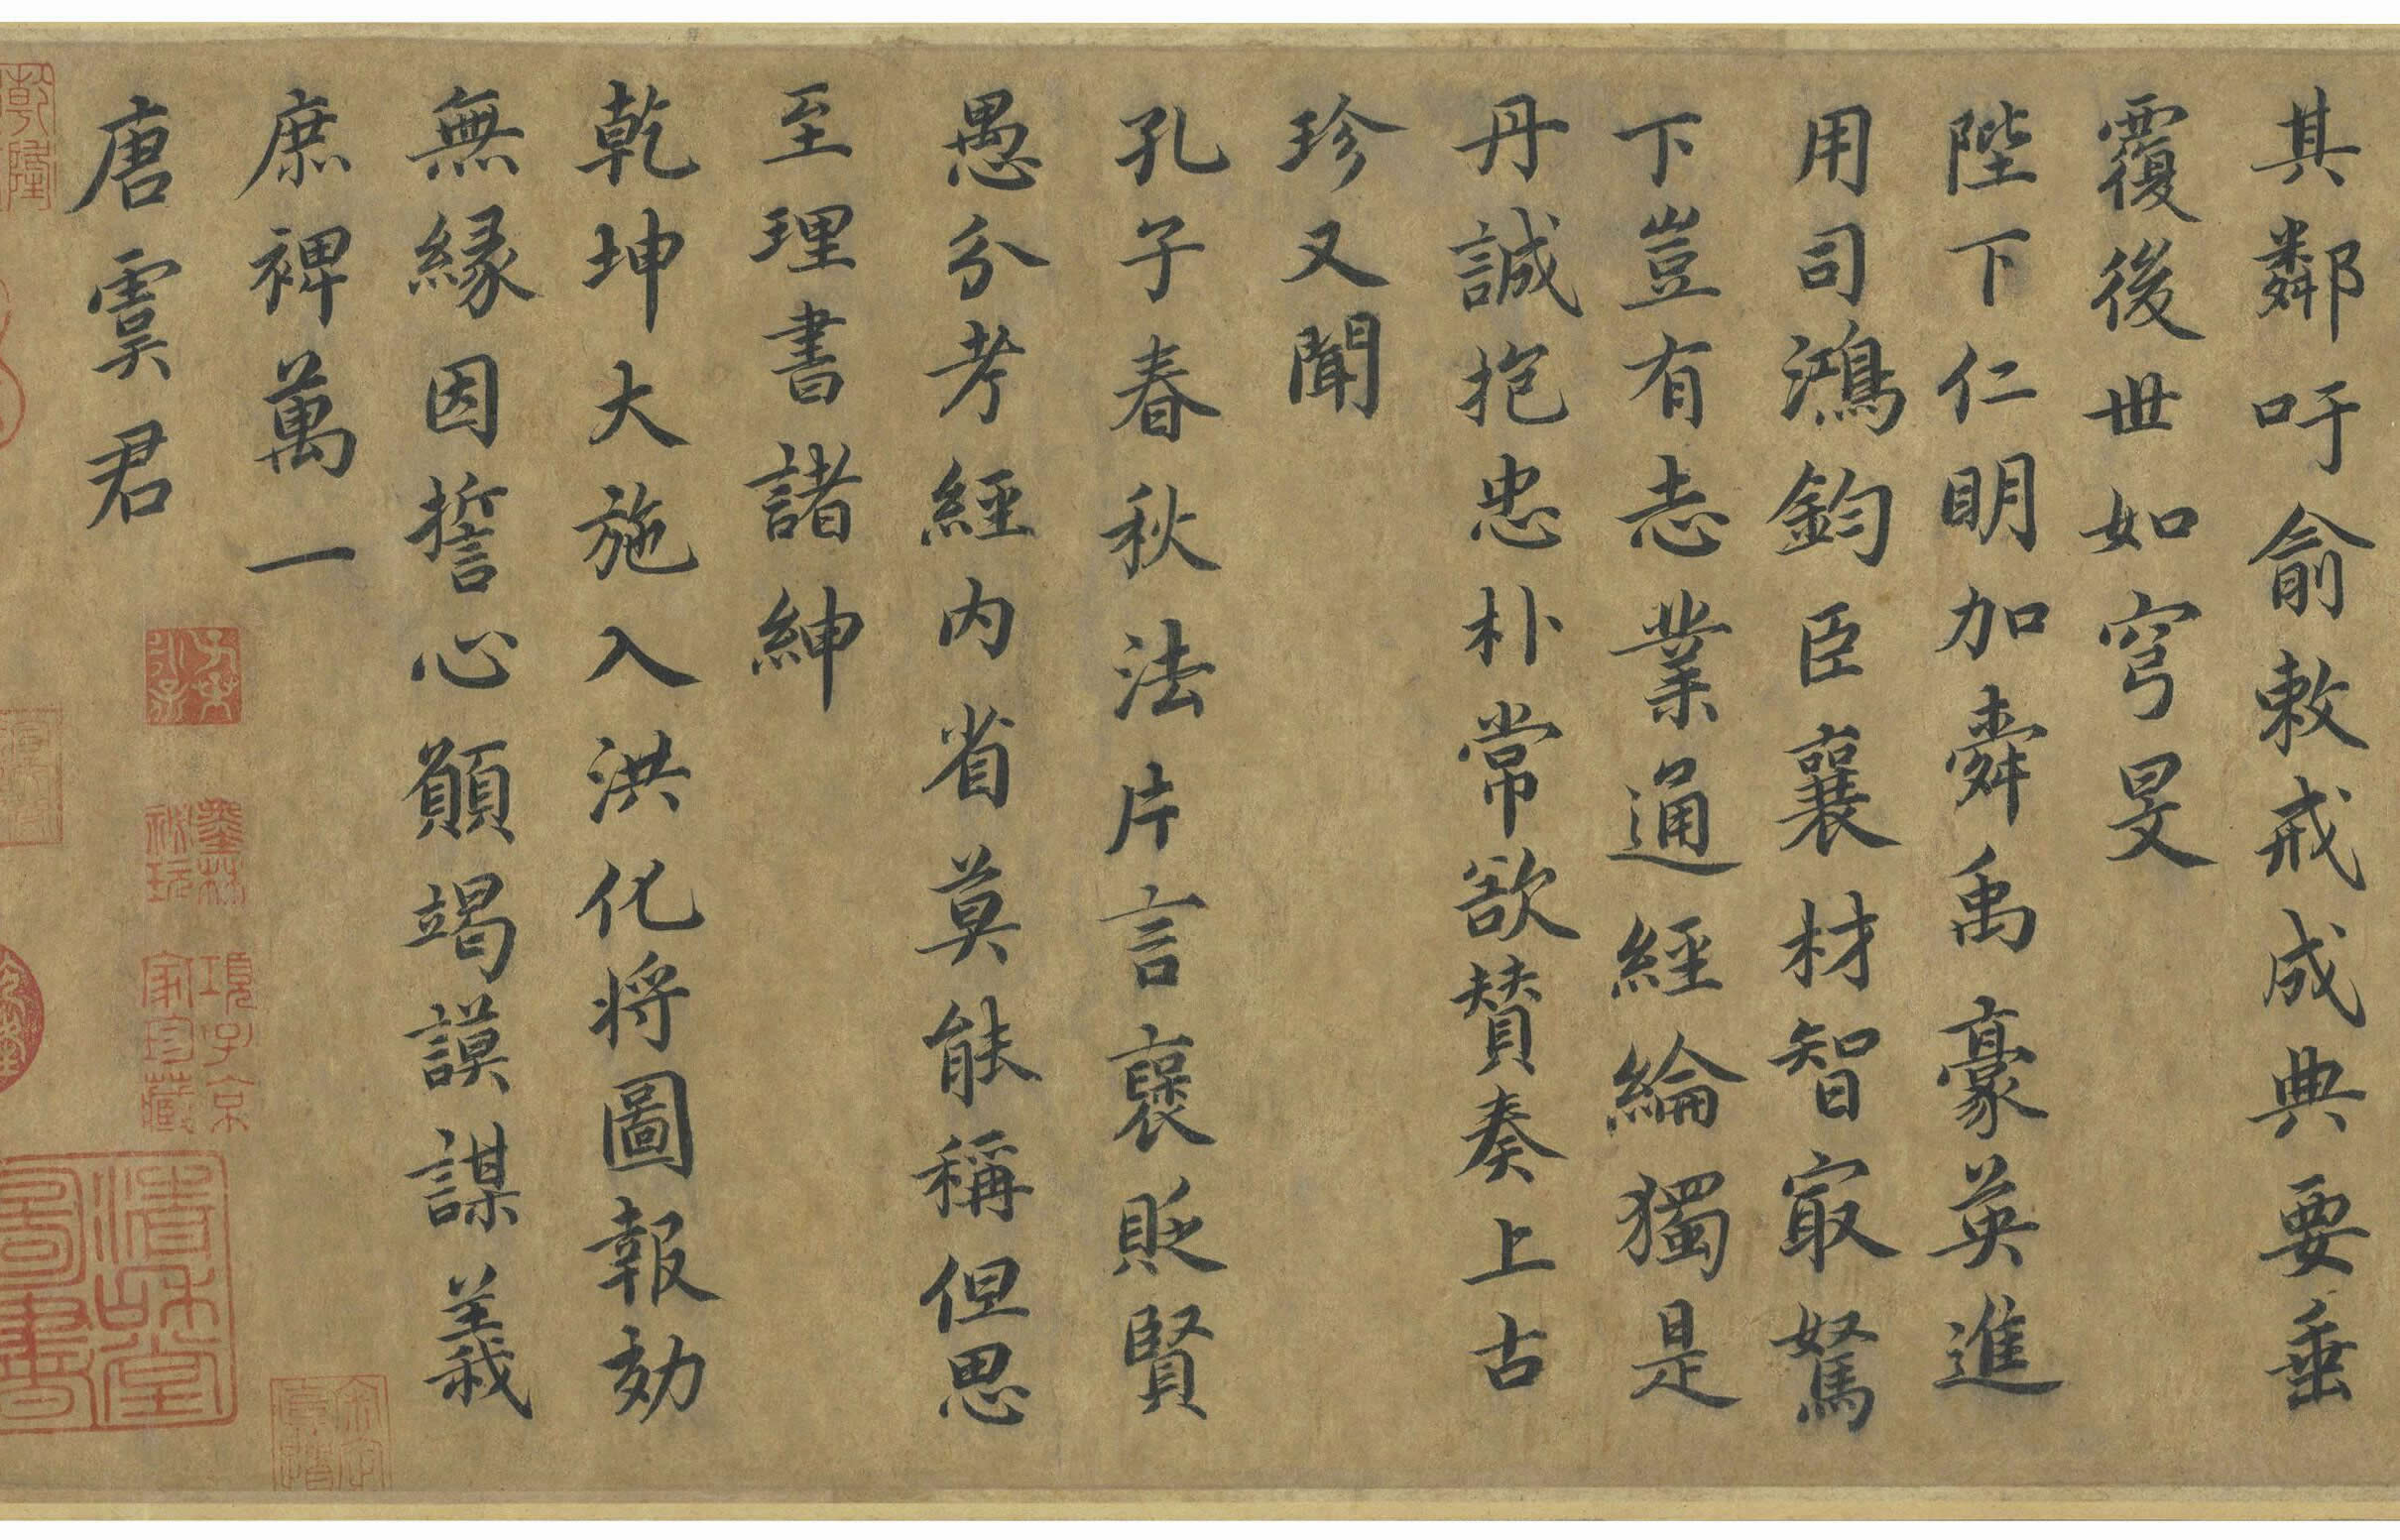 其鄰吁俞敕戒成典要垂
覆後世如穹旻
陛下仁明加舜禹豪英進
用司鴻鈞臣襄材智寂駑
下豈有志業通經綸獨是
丹誠抱忠朴常欲贊奏上古
珍又聞
孔子春秋法片言襃貶賢
愚分考經內省莫能稱但思
至理書諸紳
乾坤大施入洪化將圖報効
無緣因誓心願竭謨謀義
庶裨萬一
唐虞君
乾隆
子京
墨林祕玩
項子京家珍藏